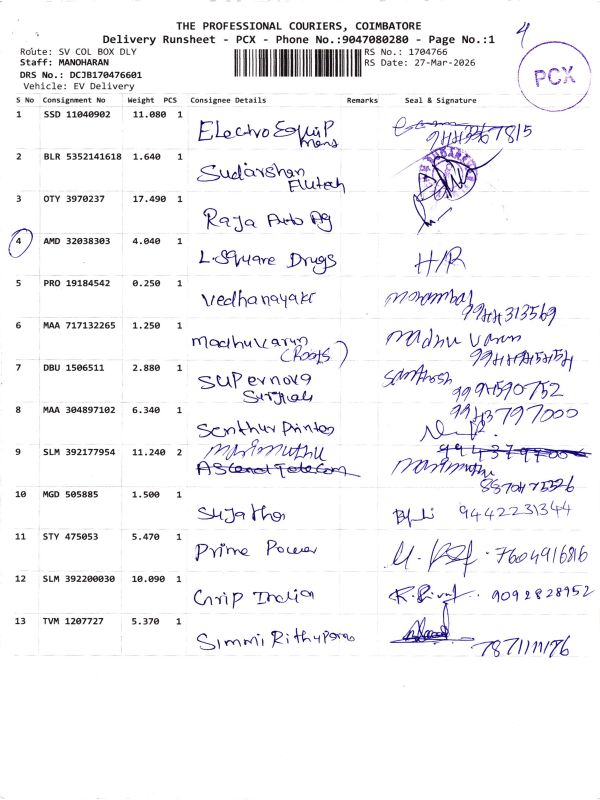 THE PROFESSIONAL COURIERS, COIMBATORE
Delivery Runsheet - PCX - Phone No.:9047080280 - Page No.:1
4
Route: SV COL BOX DLY
RS No.: 1704766
Staff: MANOHARAN
RS Date: 27-Mar-2026
DRS No.: DCJB170476601
Vehicle: EV Delivery
PCX
S No Consignment No Weight PCS Consignee Details Remarks Seal & Signature
1 SSD 11040902 11.080 1 Electro Equip
2 BLR 5352141618 1.640 1 Sudarshan
3 OTY 3970237 17.490 1 Raja Auto Ag
4 AMD 32038303 4.040 1 L.Square Drugs H/R
5 PRO 19184542 0.250 1 Vedhanayaki
9944313569
6 MAA 717132265 1.250 1 Madhuvarun Madhu Varun
(Roots)
7 DBU 1506511 2.880 1 Supernova Santhosh
9994590752
8 MAA 304897102 6.340 1 Senthur Printers
9943797000
9 SLM 392177954 11.240 2 Marimuthu Marimuthu
10 MGD 505885 1.500 1 Sujatha 9442231344
11 STY 475053 5.470 1 Prime Power 7604916816
12 SLM 392200030 10.090 1 Grip India 9092828952
13 TVM 1207727 5.370 1 Simmi